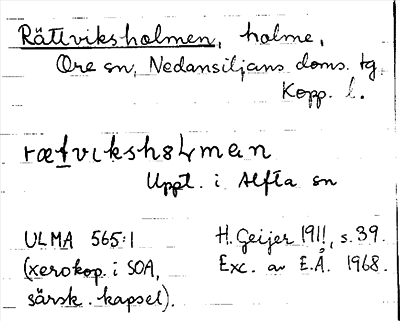 Rättviksholmen, holme,
Ore sn, Nedansiljans doms. tg.
Kopp. l.
rætvɩkshɞɭmɐn
Uppt. i Alfta sn
ULMA 565:1
(xerokop. i SOA,
särsk. kapsel).
H. Geijer 1911, s. 39.
Exc. av E.Å. 1968.